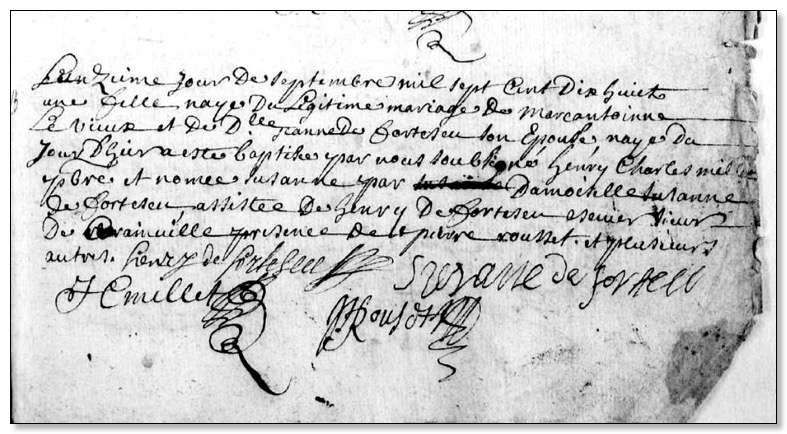 Lonzieme jour de septembre mil sept cent dix huict
une fille naye du legitime mariage de marcantoinne
Le vieux et de D.lle jeanne de fortescu son Epouse, naye du
jour d'hier a este baptisée par nous soubsigné henry Charles millet
pbre et nomée susanne par Damoiselle susanne
de fortescu assistée de henry de fortescu escuier sieur
De presence de pierre rousset. et plusieurs
autres. henry de fortescu suzanne de fortescu
H C millet
P Rousset